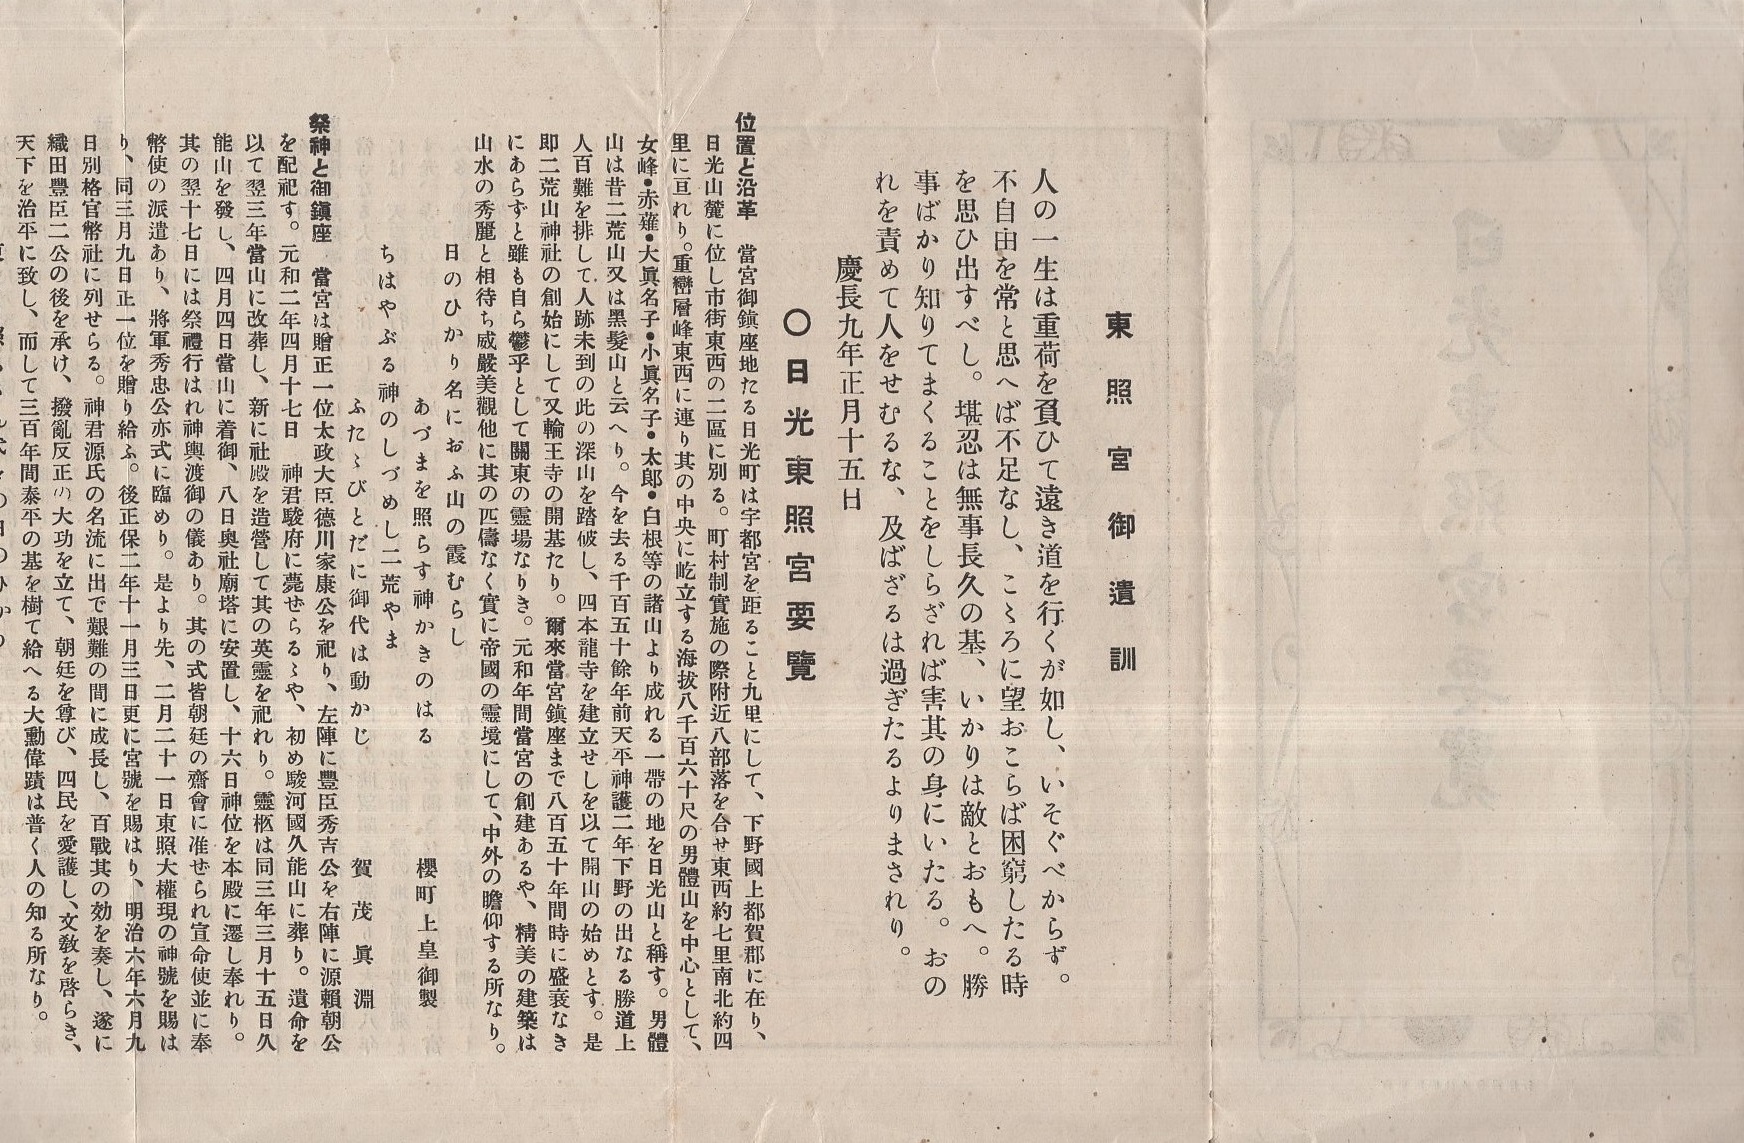 東照宮御遺訓
人の一生は重荷を負ひて遠き道を行くが如し、いそぐべからず。
不自由を常と思へば不足なし、こゝろに望おこらば困窮したる時
を思ひ出すべし。堪忍は無事長久の基、いかりは敵とおもへ。勝
事ばかり知りてまくることをしらざれば害其の身にいたる。おの
れを責めて人をせむるな、及ばざるは過ぎたるよりまされり。
慶長九年正月十五日
〇日光東照宮要覽
位置と沿革　當宮御鎭座地たる日光町は宇都宮を距ること九里にして、下野國上都賀郡に在り、
日光山麓に位し市街東西の二區に別る。町村制實施の際附近八部落を合せ東西約七里南北約四
里に亘れり。重巒層峰東西に連り其の中央に屹立する海拔八千百六十尺の男體山を中心として、
女峰・赤薙・大眞名子・小眞名子・太郎・白根等の諸山より成れる一帶の地を日光山と稱す。男體
山は昔二荒山又は黑髮山と云へり。今を去る千百五十餘年前天平神護二年下野の出なる勝道上
人百難を排して人跡未到の此の深山を踏破し、四本龍寺を建立せしを以て開山の始めとす。是
即二荒山神社の創始にして又輪王寺の開基たり。爾來當宮鎭座まで八百五十年間時に盛衰なき
にあらずと雖も自ら鬱乎として關東の靈場なりき。元和年間當宮の創建あるや、精美の建築は
山水の秀麗と相待ち威嚴美觀他に其の匹儔なく實に帝國の靈境にして、中外の瞻仰する所なり。
日のひかり名におふ山の霞むらし
あづまを照らす神かきのはる　櫻町上皇御製
ちはやぶる神のしづめし二荒やま
ふたゝびとだに御代は動かじ　賀茂眞淵
祭神と御鎭座　當宮は贈正一位太政大臣德川家康公を祀り、左陣に豐臣秀吉公を右陣に源賴朝公
を配祀す。元和二年四月十七日　神君駿府に薨ぜらるゝや、初め駿河國久能山に葬り。遺命を
以て翌三年當山に改葬し、新に社殿を造營して其の英靈を祀れり。靈柩は同三年三月十五日久
能山を發し、四月四日當山に着御、八日奥社廟塔に安置し、十六日神位を本殿に遷し奉れり。
其の翌十七日には祭禮行はれ神輿渡御の儀あり。其の式皆朝廷の齋會に准ぜられ宣命使並に奉
幣使の派遣あり、將軍秀忠公亦式に臨めり。是より先、二月二十一日東照大權現の神號を賜は
り、同三月九日正一位を贈り給ふ。後正保二年十一月三日更に宮號を賜はり、明治六年六月九
日別格官幣社に列せらる。神君源氏の名流に出で艱難の間に成長し、百戰其の効を奏し、遂に
織田豐臣二公の後を承け、撥亂反正の大功を立て、朝廷を尊び、四民を愛護し、文敎を啓らき、
天下を治平に致し、而して三百年間泰平の基を樹て給へる大勳偉蹟は普く人の知る所なり。